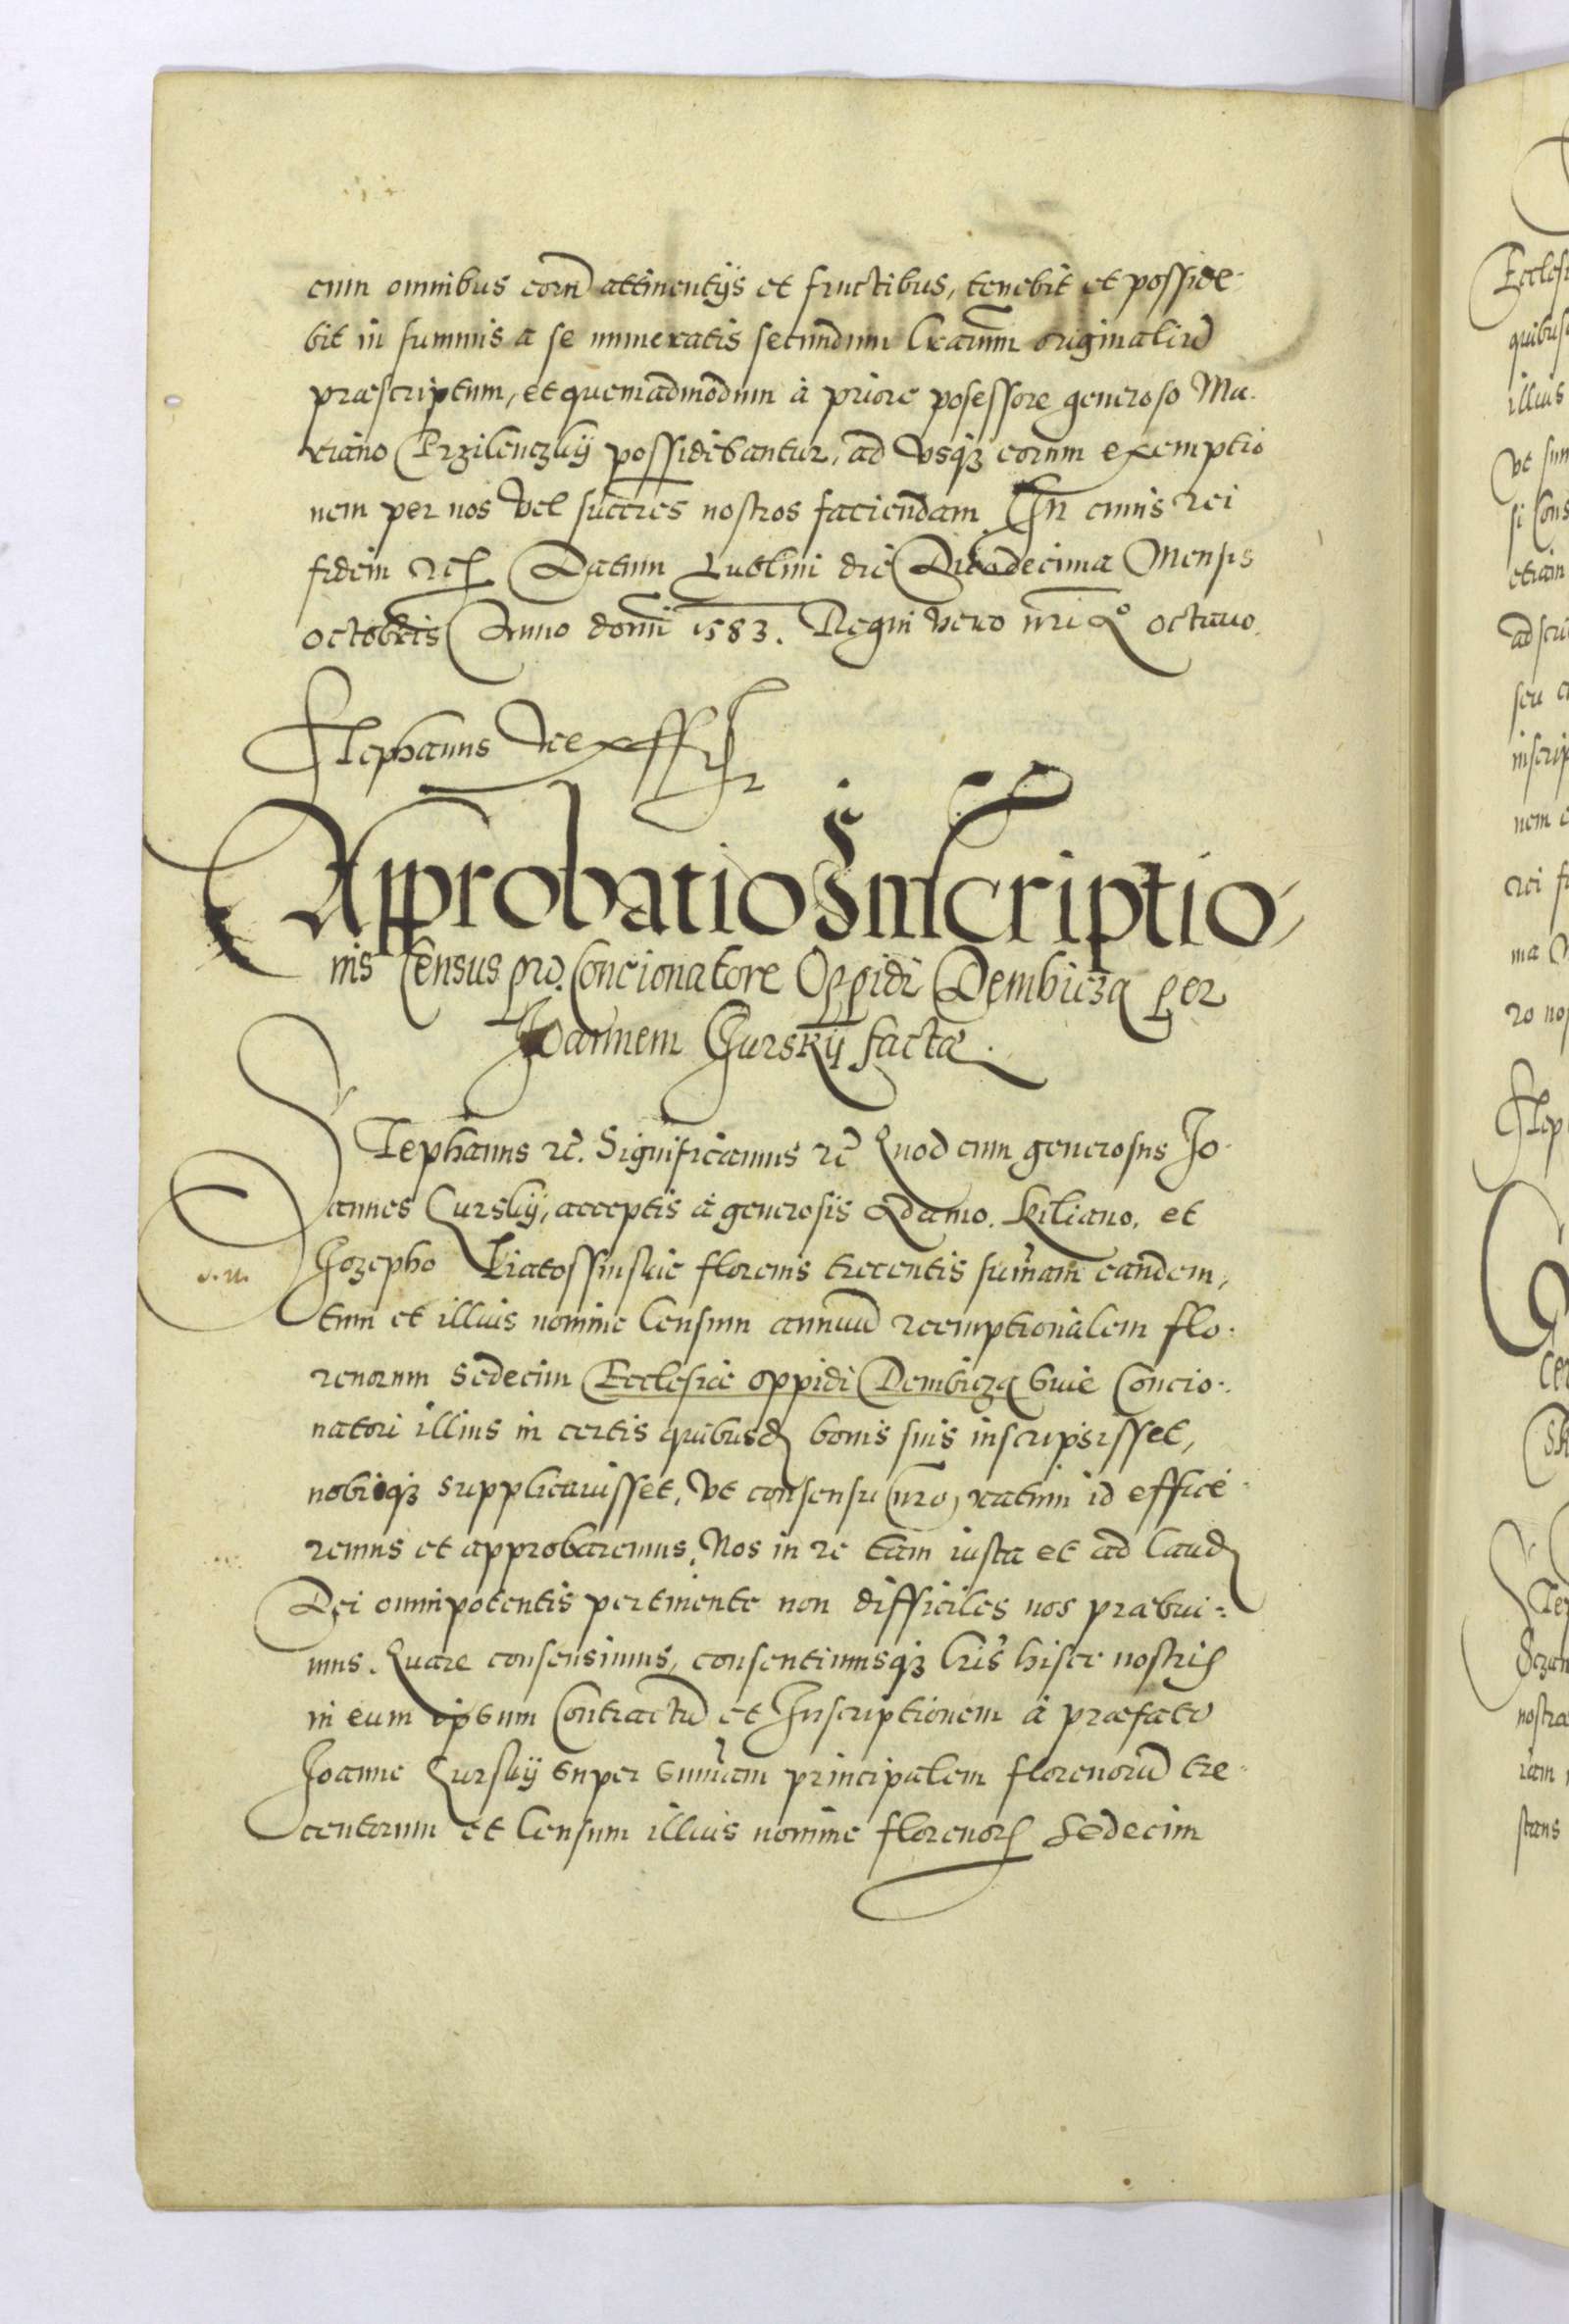 cum omnibus eorũ attinentijs et fructibus, tenebit et posside-
bit in summis a se numeratis secundum Lrarum originaliũ
præscriptum, et quemadmodum à priore posessore generoso Ma-
tiano Przilenczkij possidebantur, ad vsq3 eorum exemptio
nem per nos vel succres nostros faciendam. In cuius rei
fidem etc. Datum Lublini die Duodecima Mensis
octobris Anno domi 1583. Regni vero nri Ao octauo.
Stephanus Rex ssr
Approbatio Inscriptio-
nis Census pro Concionatore Oppidi Dembicza per
Joannem Gurskij facta.
Stephanus etc. Significamus etc Quod cum generosus Jo-
annes Gurskij, acceptis à generosis Adamo, Kiliano, et
Jozepho florenis trecentis sum̃am eandem,
tum et illius nomine Censum annuũ reemptionalem flo-
renorum sedecim Ecclesiæ oppidi Dembicza siue Concio-
natori illius in certis quibusd bonis suis inscripsisset,
nobisq3 supplicauisset, vt consensu nro, ratum id effice-
remus et approbaremus, Nos in re tam iusta et ad laud
Dei omnipotentis pertinente non difficiles nos præbui-
mus. Quare consensimus, consentimusq3 lris hisce nostris
in eum ipsum Contractũ et Inscriptionem à præfato
Joanne Gurskij super summam principalem florenorũ tre-
centorum et Censum illius nomine florenor sedecim